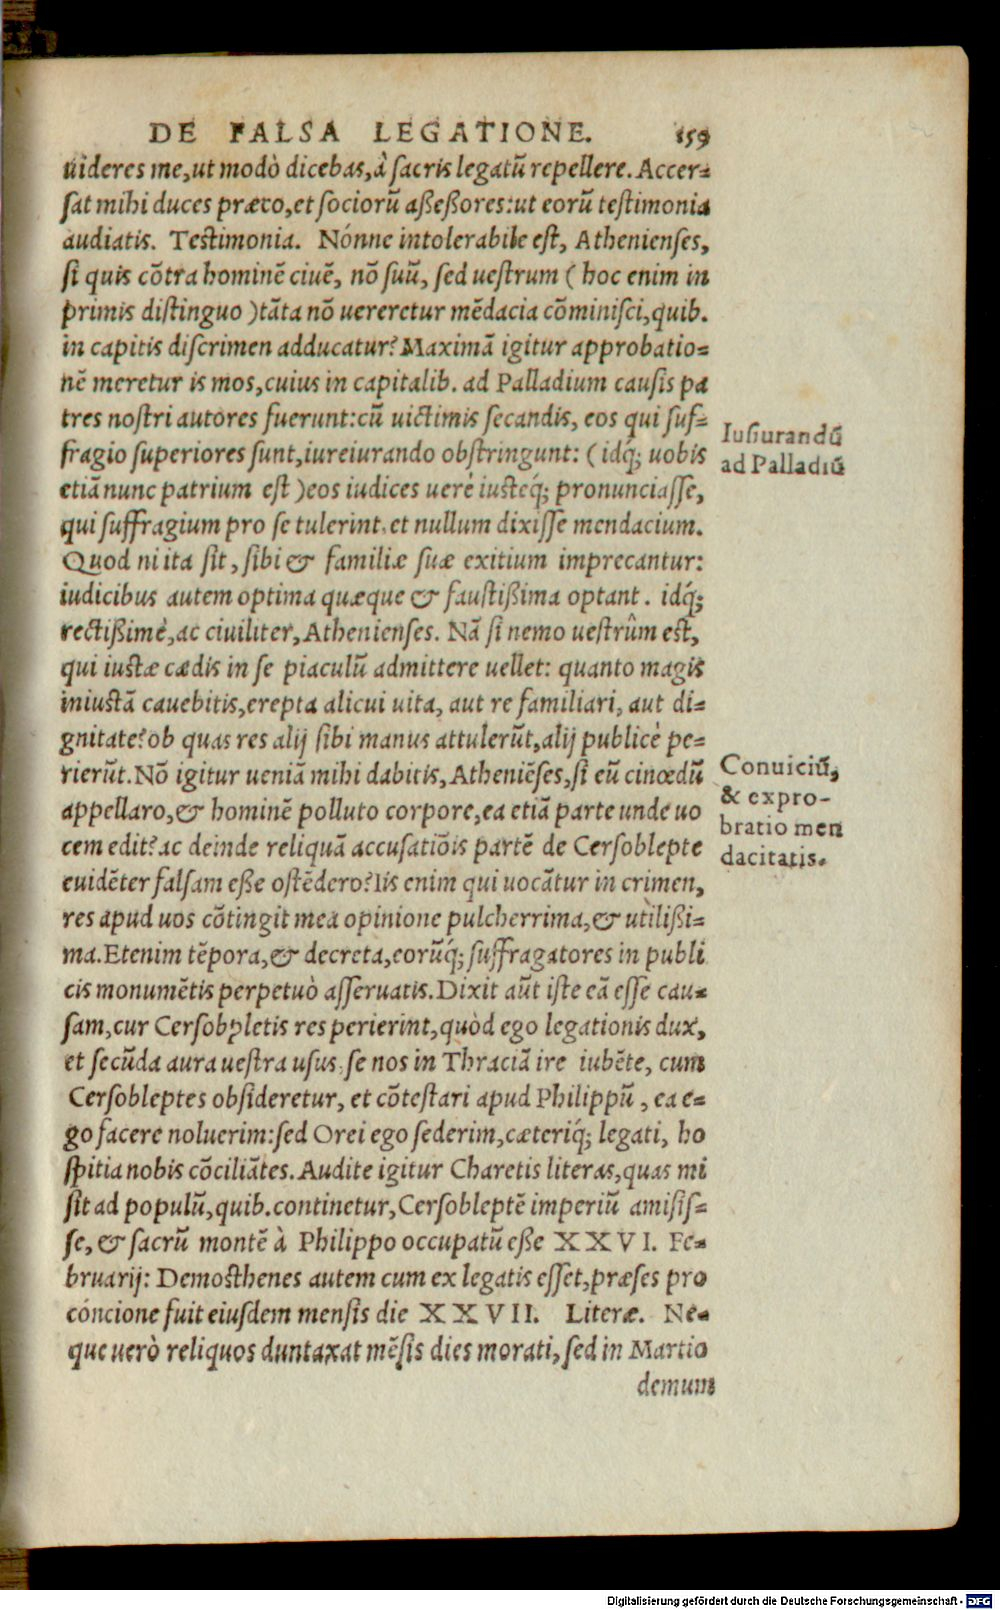 DE FALSA LEGATIONE. 159
uideres me, ut modò dicebas, à sacris legatũ repellere. Accer-
sat mihi duces præco, et sociorũ aßeßores: ut eorũ testimonia
audiatis. Testimonia. Nónne intolerabile est, Athenienses,
si quis cõtra hominẽ ciuẽ, nõ suũ, sed uestrum (hoc enim in
primis distinguo) tãta nõ uereretur mẽdacia cõminisci, quib.
in capitis discrimen adducatur? Maximã igitur approbatio-
nẽ meretur is mos, cuius in capitalib. ad Palladium causis pa
tres nostri autores fuerunt: cũ uictimis secandis, eos qui suf-
fragio superiores sunt, iureiurando obstringunt: (idq́; uobis
Iusiurandũ
ad Palladiũ
etiã nunc patrium est) eos iudices uerè iusteq́; pronunciasse,
qui suffragium pro se tulerint, et nullum dixisse mendacium.
Quod ni ita sit, sibi & familiæ suæ exitium imprecantur:
iudicibus autem optima quæque & faustißima optant. idq́;
rectißimè, ac ciuiliter, Athenienses. Nã si nemo uestrûm est,
qui iustæ cædis in se piaculũ admittere uellet: quanto magis
iniustã cauebitis, erepta alicui uita, aut re familiari, aut di-
gnitate? ob quas res alij sibi manus attulerũt, alij publicè pe-
rierũt. Nõ igitur ueniã mihi dabitis, Atheniẽses, si eũ cinœdũ
appellaro, & hominẽ polluto corpore, ea etiã parte unde uo
Conuiciũ,
& expro-
bratio men
dacitatis.
cem edit? ac deinde reliquã accusatiõis partẽ de Cersoblepte
euidẽter falsam eße ostẽdero? Iis enim qui uocãtur in crimen,
res apud uos cõtingit mea opinione pulcherrima, & utilißi-
ma. Etenim tẽpora, & decreta, eorũq́; suffragatores in publi
cis monumẽtis perpetuò asseruatis. Dixit aũt iste eã esse cau-
sam, cur Cersobpletis res perierint, quòd ego legationis dux,
et secũda aura uestra usus, se nos in Thraciã ire iubẽte, cum
Cersobleptes obsideretur, et cõtestari apud Philippũ, ea e-
go facere noluerim: sed Orei ego sederim, cæteriq́; legati, ho
spitia nobis cõciliãtes. Audite igitur Charetis literas, quas mi
sit ad populũ, quib. continetur, Cersobleptẽ imperiũ amisis-
se, & sacrũ montẽ à Philippo occupatũ eße XXVI. Fe-
bruarij: Demosthenes autem cum ex legatis esset, præses pro
cóncione fuit eiusdem mensis die XXVII. Literæ. Ne-
que uerò reliquos duntaxat mẽsis dies morati, sed in Martio
demum
Digitalisierung gefördert durch die Deutsche Forschungsgemeinschaft - DFG